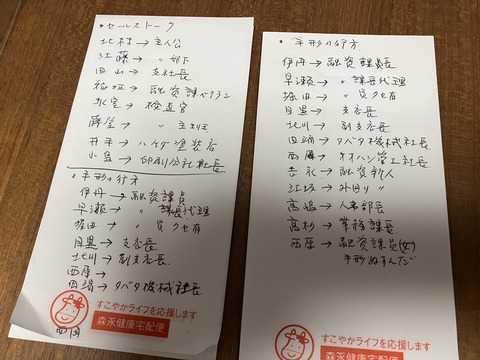 ・セールストーク
北村→主人公
江藤→〃部下
田山→支社長
稲垣→融資課ベテラン
→検査官
→〃主任
井手→ハケタ塗装店
小島→印刷会社社長
・手形の行方
伊丹→融資課員
早瀬→〃課長代理
堀田→〃貸クセ有
目黒→支店長
北川→副支店長
西原→
田端→タバタ機械社長
西岡
すこやかライフを応援します
森永健康宅配便
・手形の行方
伊丹→融資課課長
早瀬→〃課長代理
堀田→〃貸クセ有
目黒→支店長
北川→副支店長
田端→タバタ機械社長
西岡→管工社長
→融資新人
江坂→外回り〃
高嶋→人事部長
高杉→業務課長
西原→融資課員(女)
手形ぬすんだ
すこやかライフを応援します
森永健康宅配便